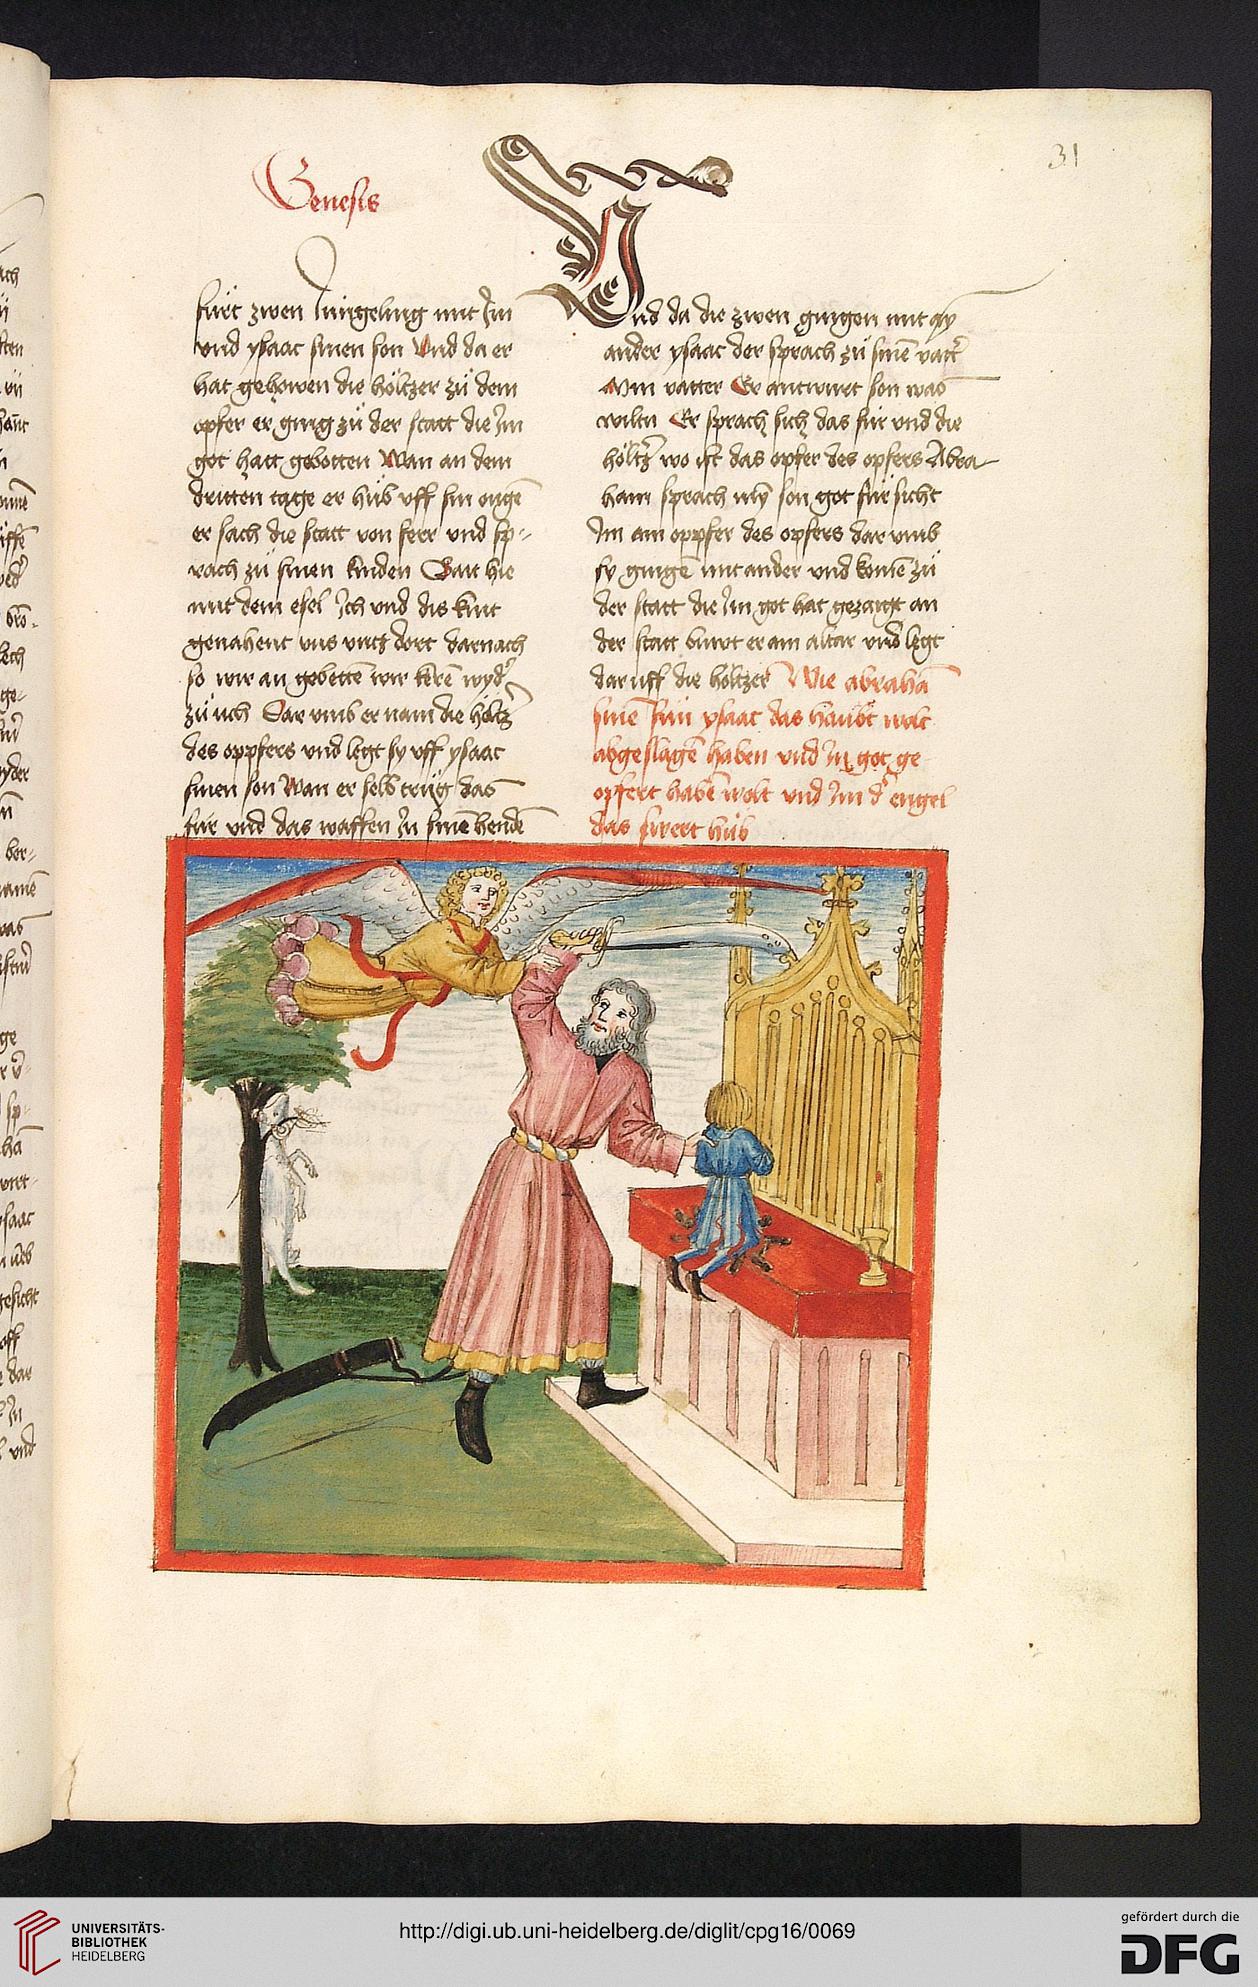 31
Genesis
fürt zwen Jungeling mit Im
vnd ysaac sinen son Vnd da er
hat gehowen die höltzer zü dem
opfer er ging zü der statt die Im
got hatt gebotten Wan an dem
dritten tage er hüb vff sin ougē
er sach die statt von ferr vnd sp-
rach zü sinen kinden Bait hie
mit dem esel Ich vnd dis kint
genahent vns vntz dort darnach
so wir an gebettē wir kerē wyd
zü uch Dar vmb er nam die höltz
des oppfers vnd legt sy vff ysaac
sinen son Wan er selb trüg das
für vnd das waffen In sinē hendē
Vnd da die zwen gingen mit
ander ysaac der sprach zü sinē vatt
Min vatter Er antwurt son was
wiltu Er sprach sich das für vnd die
höltz wo ist das opfer des opfers Abra
ham sprach mȳ son got fürsicht
Im ain oppfer des opfers dar vmb
sy gingē mit ander vnd komē zü
der statt die Im got hat gezaigt an
der statt buwt er ain altar vnd legt
dar uff die höltzer Wie abrahā
sinē sün ysaac das haübt wolt
abgeslagē haben vnd In got ge
opfert habē wolt vnd Im d engel
das swert hüb
UNIVERSITÄTS-
BIBLIOTHEK
HEIDELBERG
http://digi.ub.uni-heidelberg.de/diglit/cpg16/0069
gefördert durch die
DFG